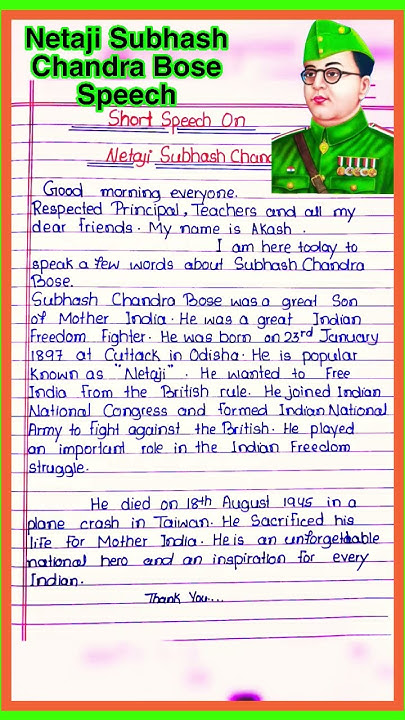 Netaji Subhash
Chandra Bose
Speech
Short Speech On
Netaji Subhash Chand
Good morning everyone.
Respected Principal, Teachers and all my
dear friends. My name is Akash.
I am here today to
speak a few words about Subhash Chandra
Bose.
Subhash Chandra Bose was a great Son
of Mother India. He was a great Indian
Freedom Fighter. He was born on 23rd January
1897 at Cuttack in Odisha. He is popular
Known as "Netaji". He wanted to Free
India from the British rule. He joined Indian
National Congress and formed Indian National
Army to fight against the British. He played
an important role in the Indian Freedom
struggle.
He died on 18th August 1945 in a
plane crash in Taiwan. He Sacrificed his
life for Mother India. He is an unforgettable
national hero and an inspiration for every
Indian.
Thank You...